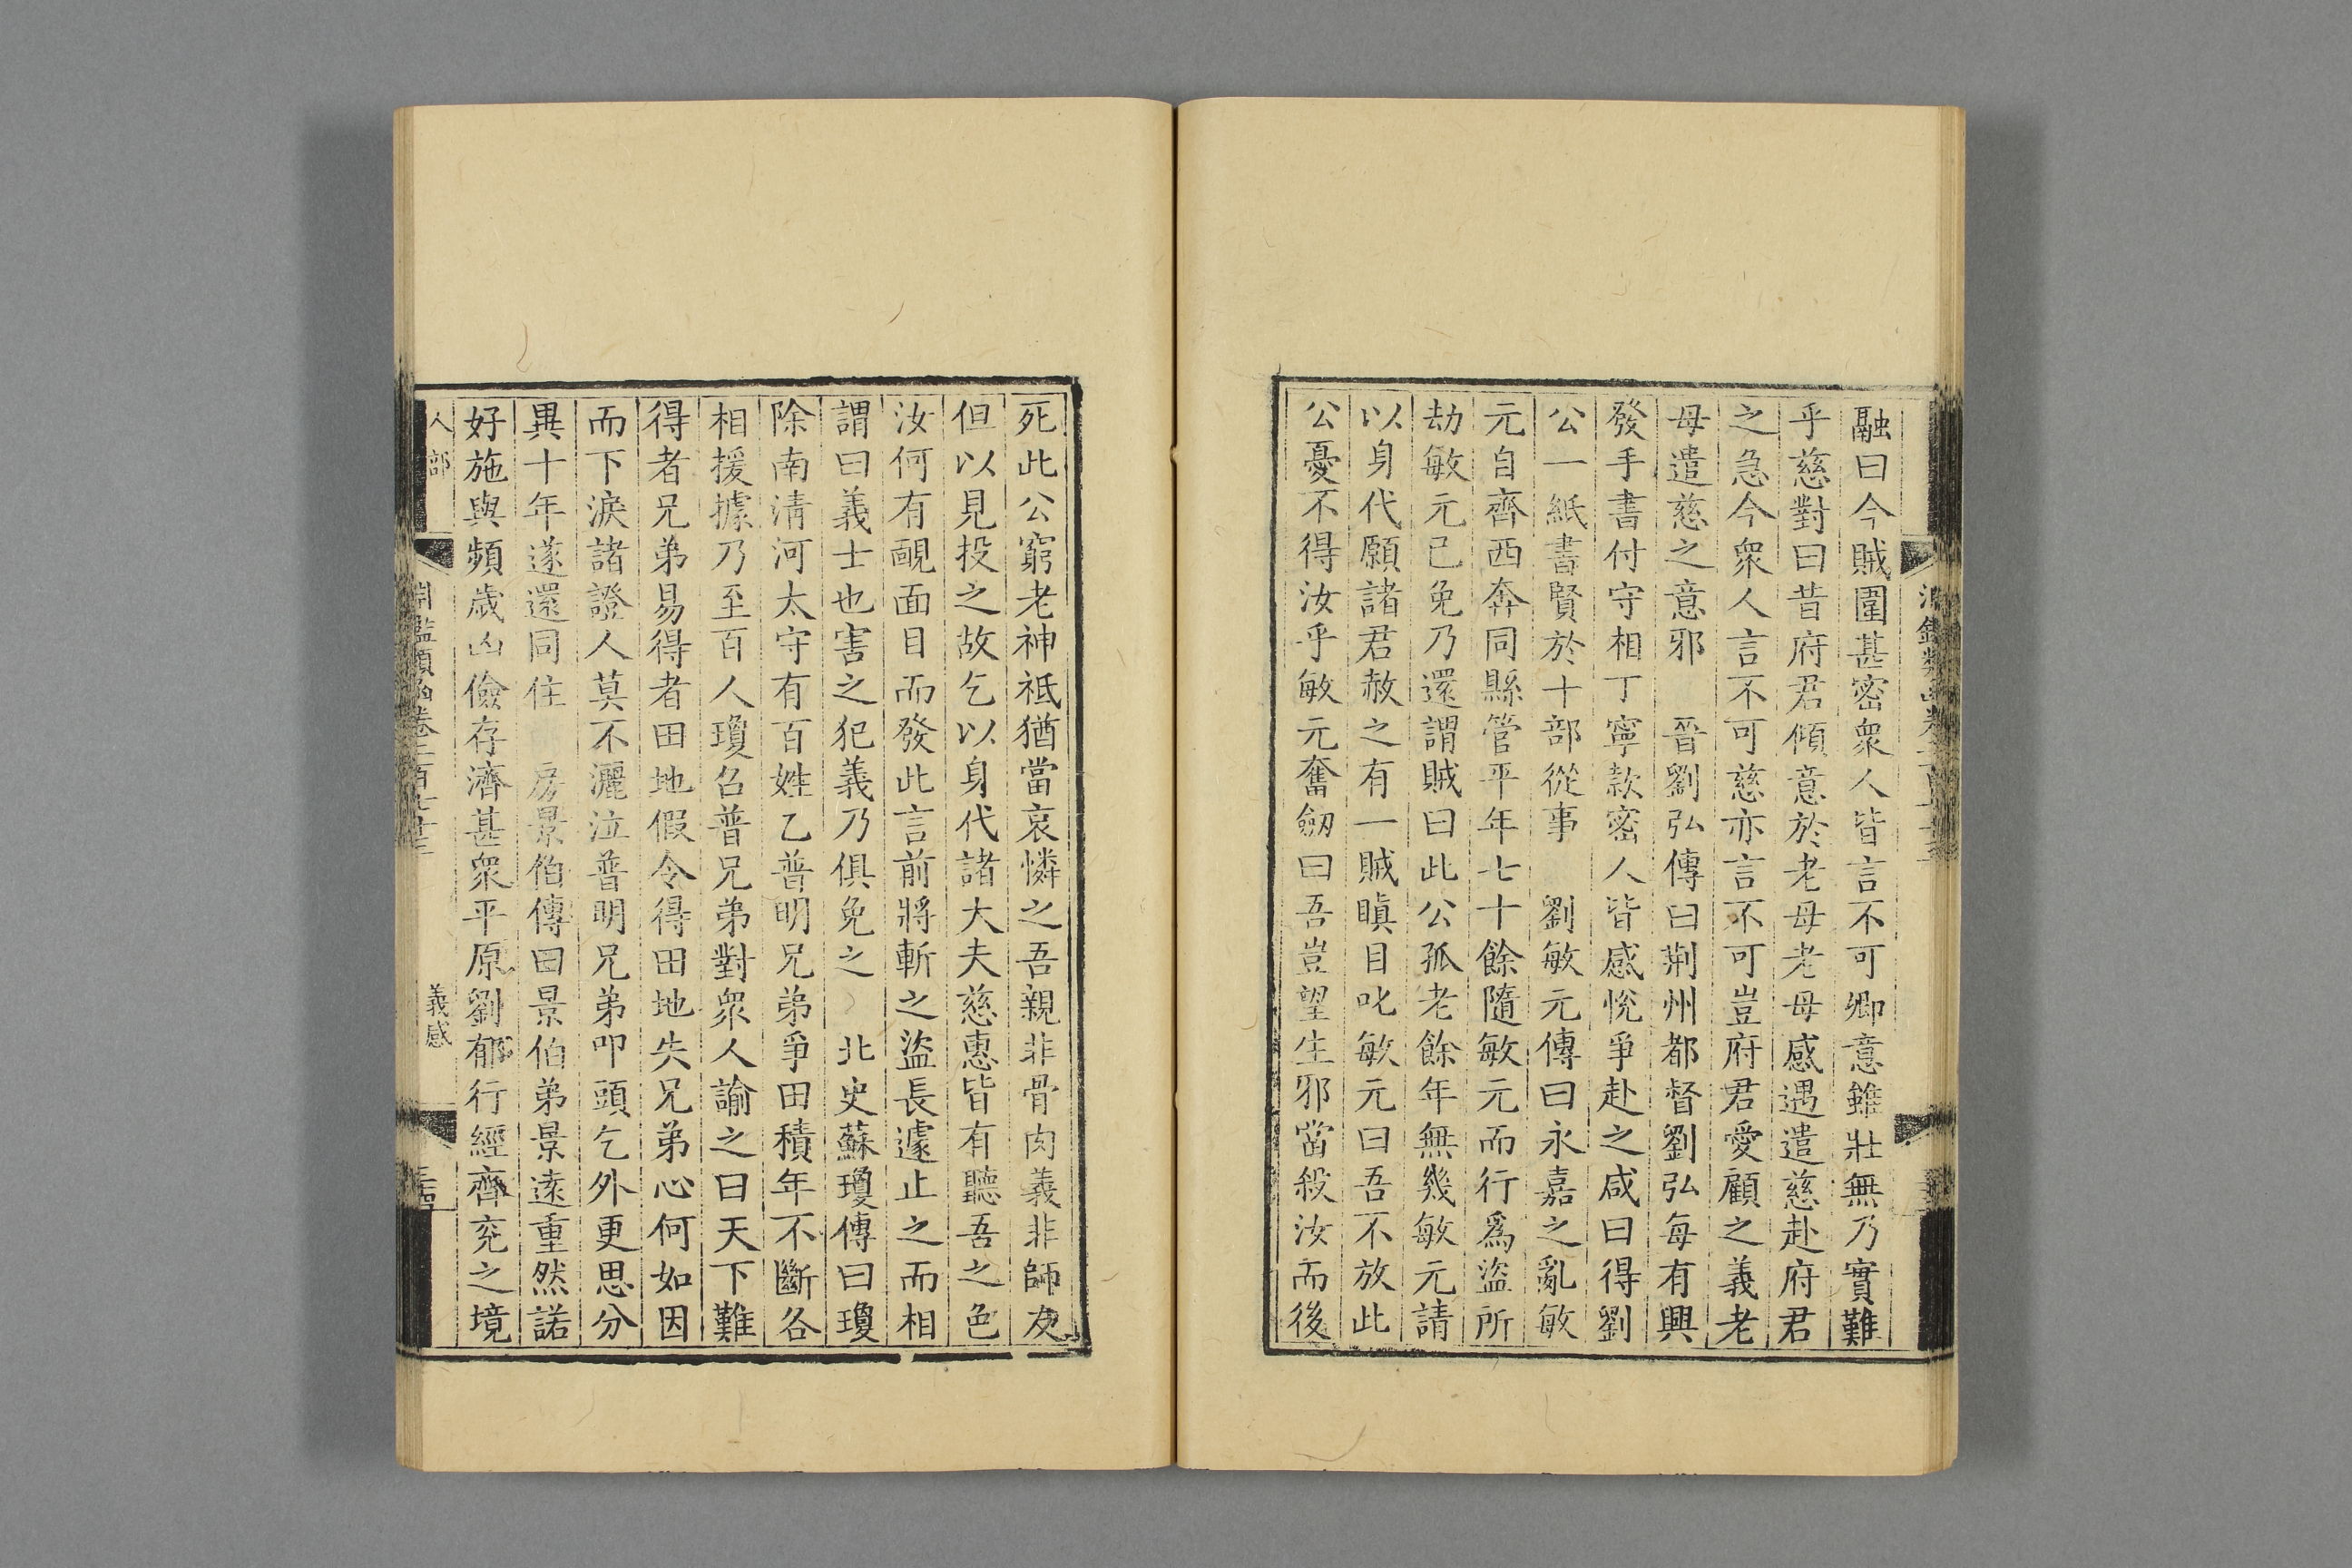 融曰今賊圍甚密衆人皆言不可卿意雖壯無乃實難
乎慈對曰昔府君傾意於老母老母感遇遣慈赴府君
之急今衆人言不可慈亦言不可豈府君愛顧之義老
母遣慈之意邪　晉劉弘傳曰荆州都督劉弘每有興
發手書付守相丁寧款密人皆感悅爭赴之咸曰得劉
公一紙書賢於十部從事　劉敏元傳曰永嘉之亂敏
元自齊西奔同縣管平年七十餘隨敏元而行爲盜所
劫敏元已免乃還謂賊曰此公孤老餘年無幾敏元請
以身代願諸君赦之有一賊瞋目叱敏元曰吾不放此
公憂不得汝乎敏元奮劒曰吾豈望生邪當殺汝而後
死此公窮老神祇猶當哀憐之吾親非骨肉義非師友
但以見投之故乞以身代諸大夫慈惠皆有聽吾之色
汝何有靦面目而發此言前將斬之盜長遽止之而相
謂曰義士也害之犯義乃俱免之　北史蘇瓊傳曰瓊
除南淸河太守有百姓乙普明兄弟爭田積年不斷各
相援據乃至百人瓊召普兄弟對衆人諭之曰天下難
得者兄弟易得者田地假令得田地失兄弟心何如因
而下淚諸證人莫不灑泣普明兄弟叩頭乞外更思分
異十年遂還同住　房景伯傳曰景伯弟景遠重然諾
好施與頻歲凶儉存濟甚衆平原劉郁行經齊兖之境
人部
淵鑑類函卷二百七十三
義感